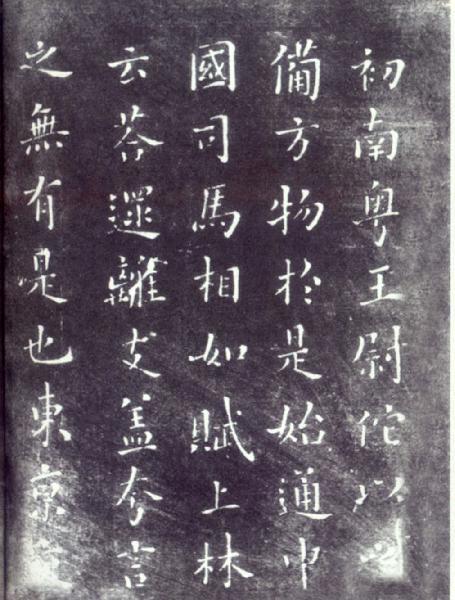 初南粵王尉佗以
備方物於是始通中
國司馬相如賦上林
云荅遝離支盖夸言
之無有是也東京